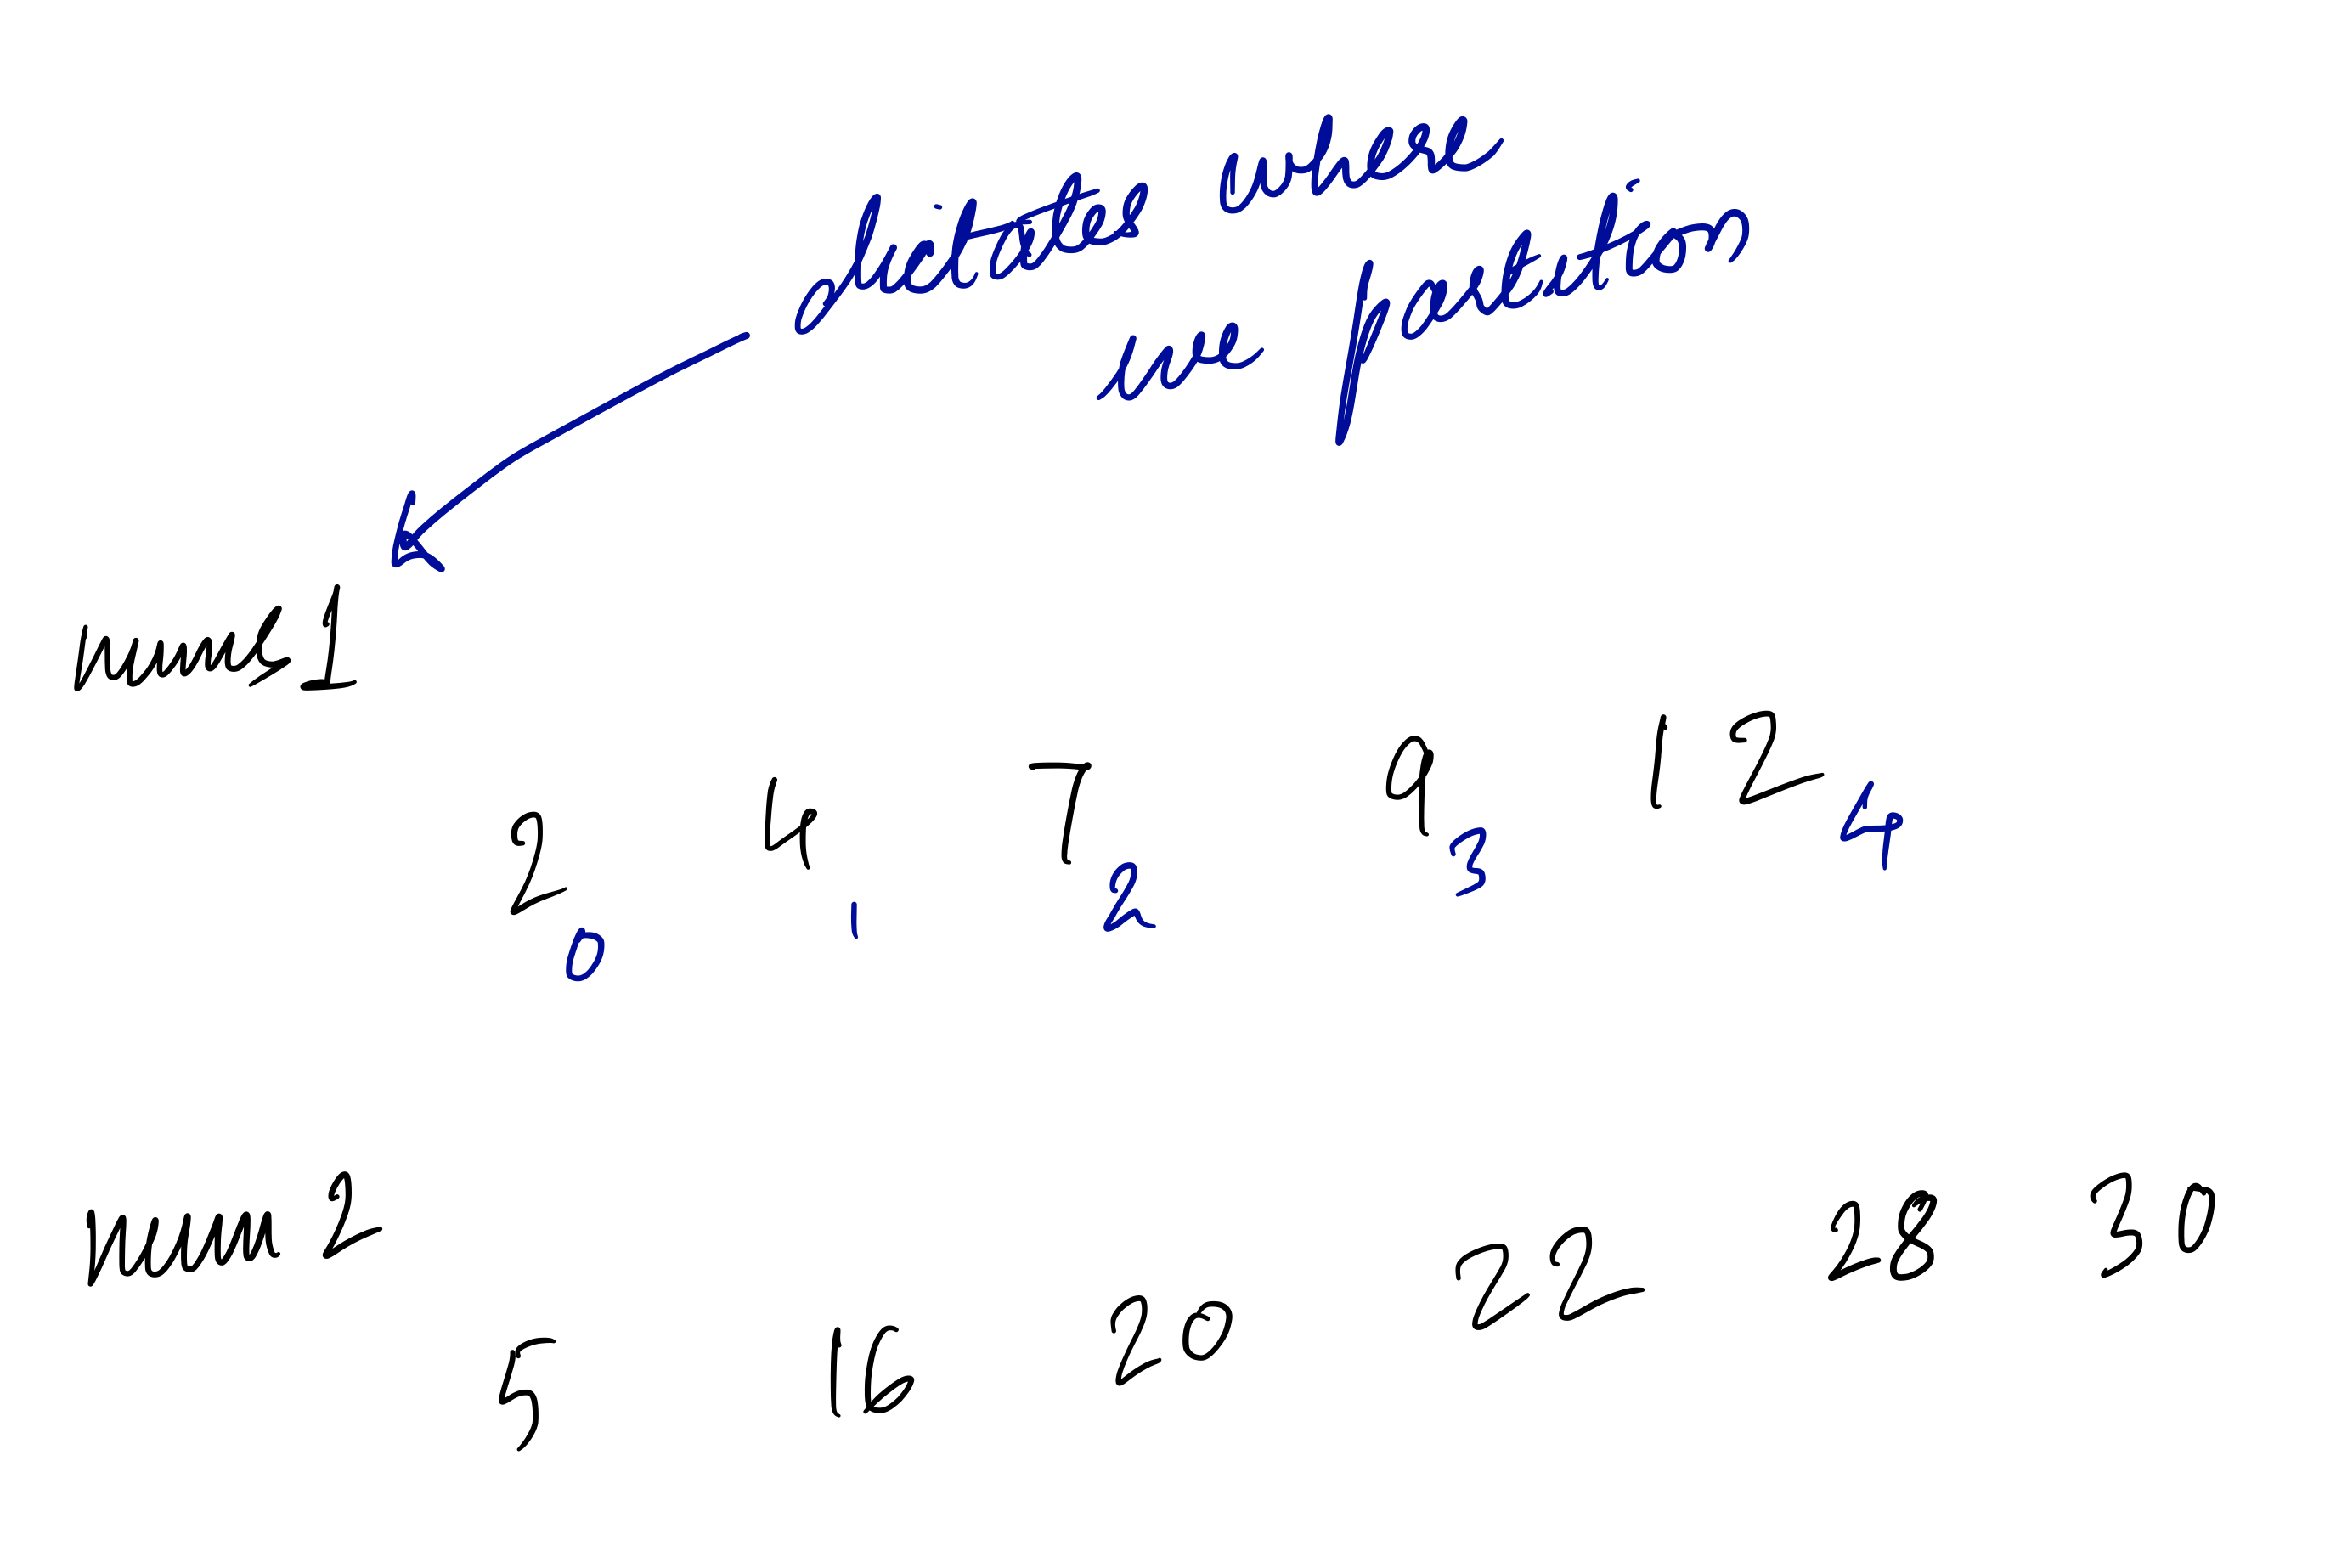 dictates where
we partition
nums1
2 4 7 9 12
0 1 2 3 4
num2
5 16 20 22 28 30